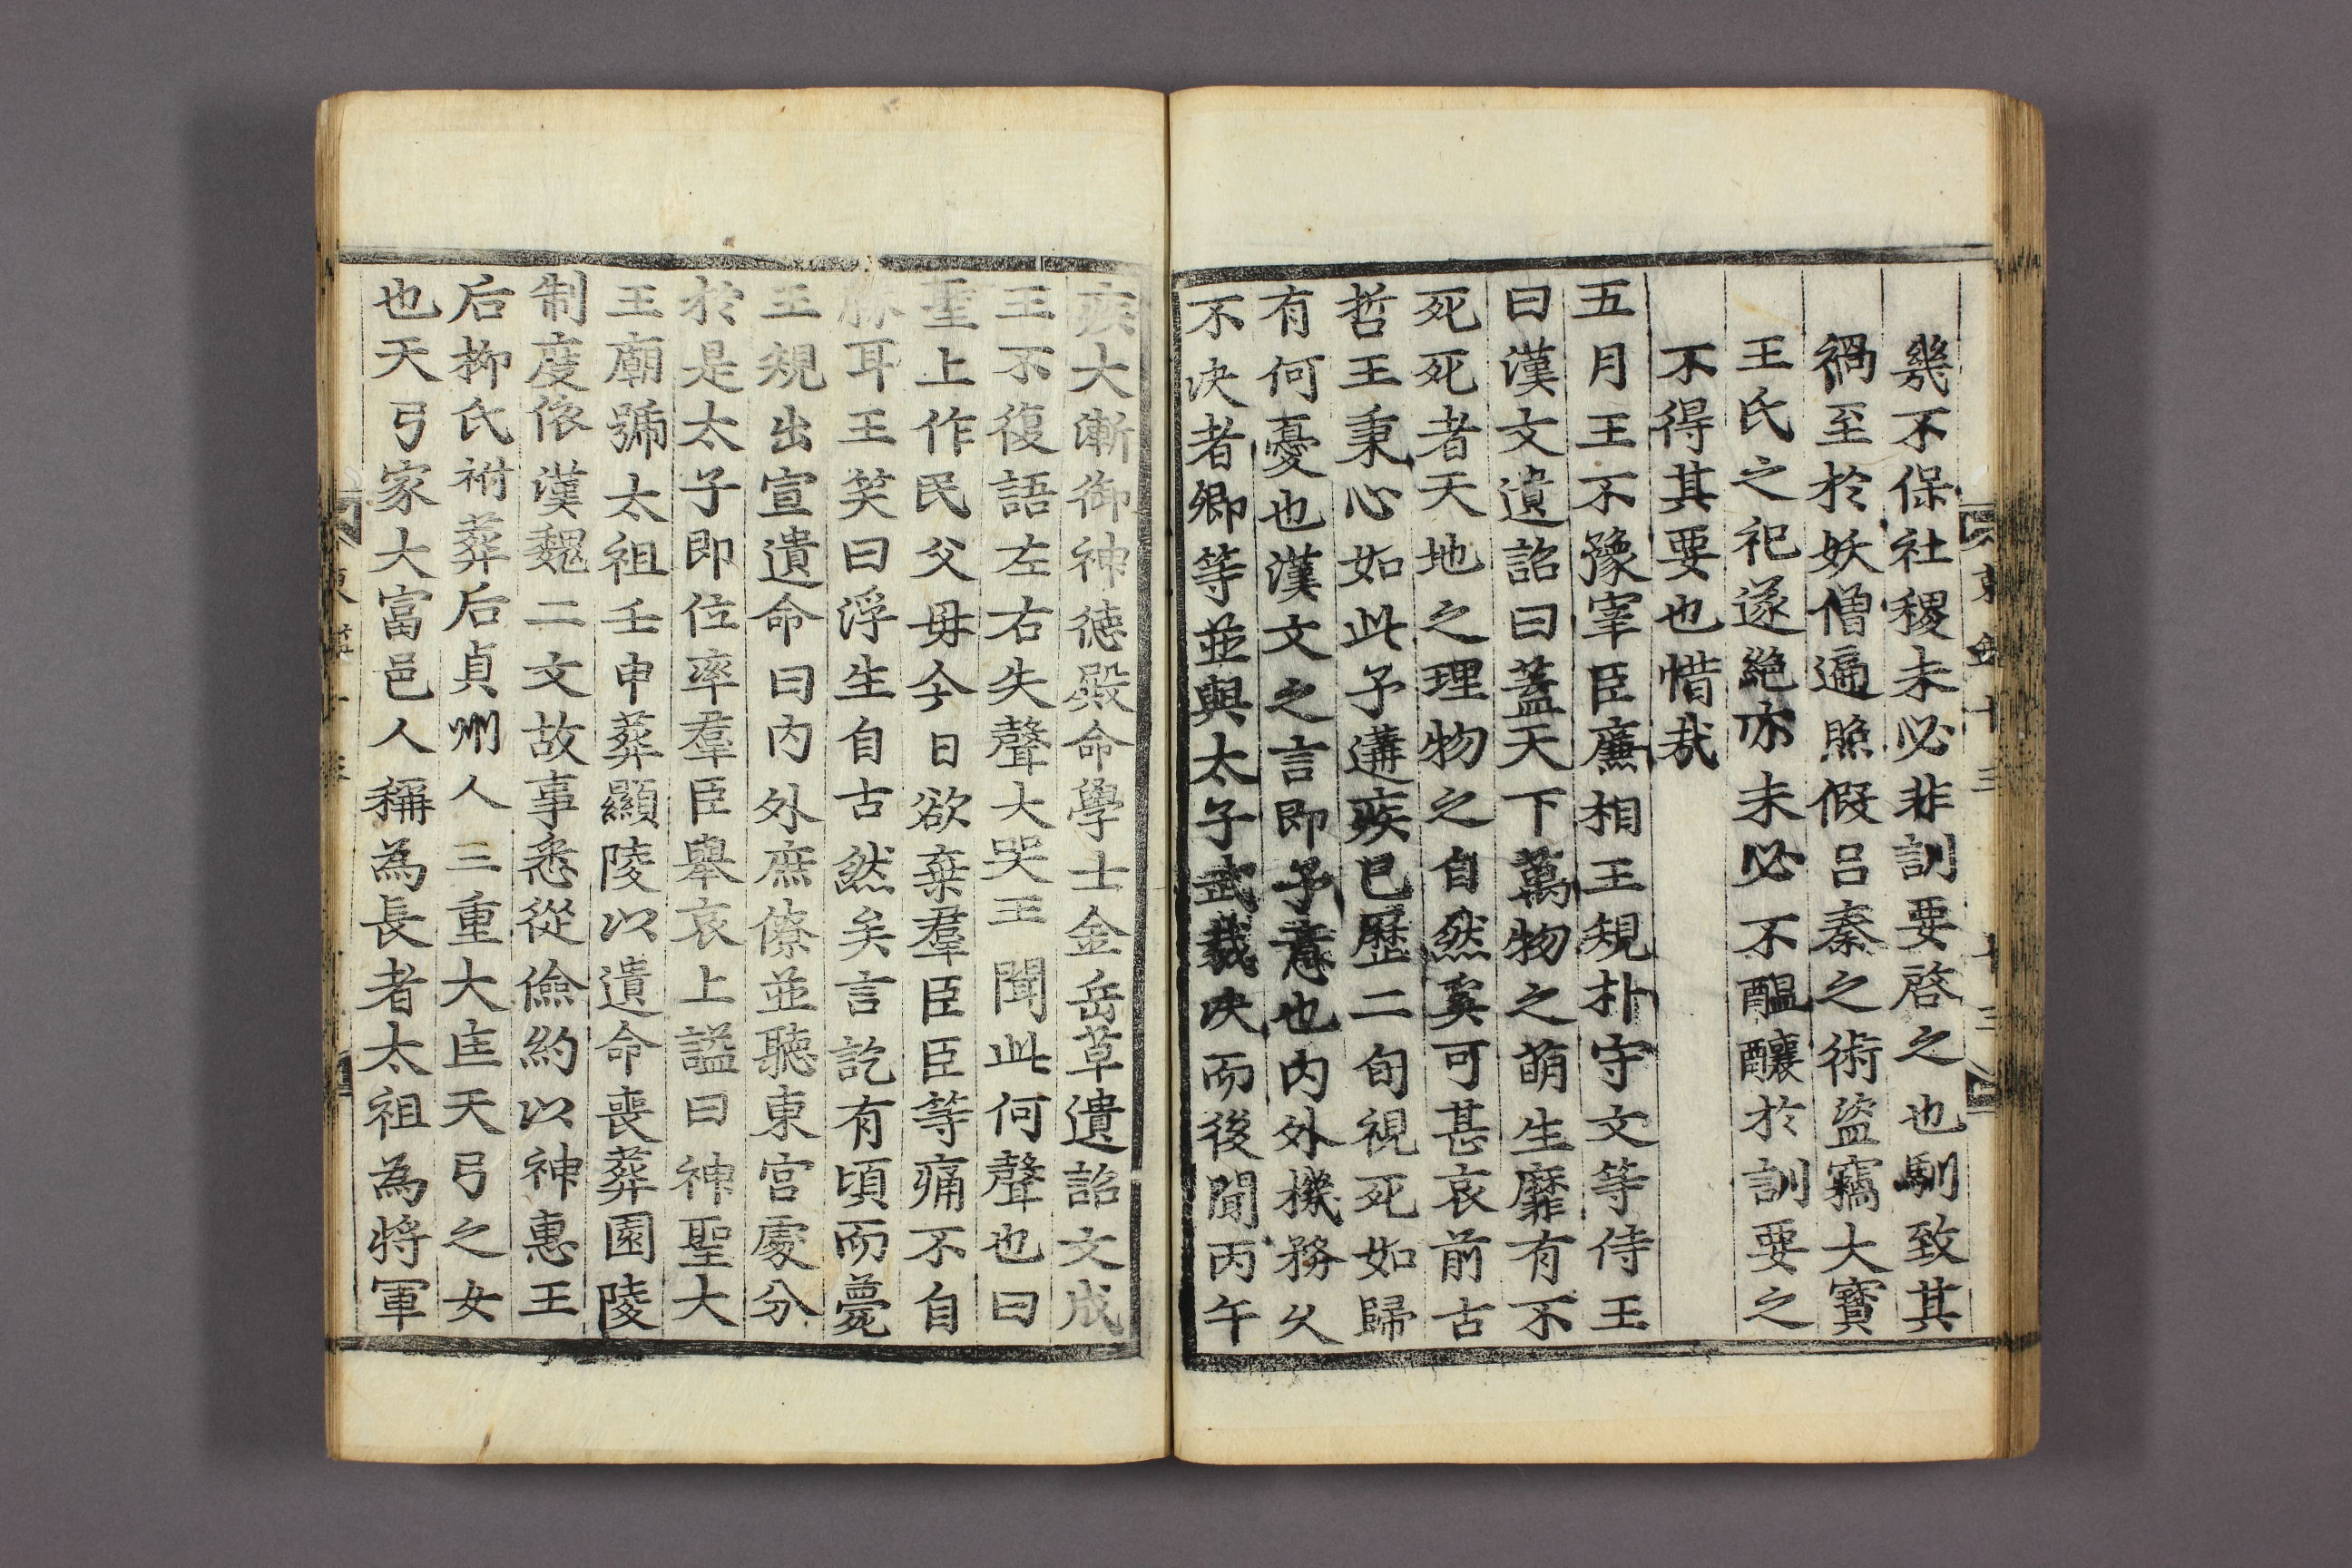 幾不保社稷未必非訓要啓之也馴致其
禍至於妖僧遍照假呂秦之術盜竊大寶
王氏之祀遂絶亦未必不醞釀於訓要之
不得其要也惜㢤
五月王不豫宰臣廉相王規朴守文等侍王
曰漢文遺詔曰蓋天下萬物之萌生靡有不
死死者天地之理物之自然奚可甚哀前古
哲王秉心如此予遘疾已歷二旬視死如歸
有何憂也漢文之言即予意也内外機務久
不决者卿等並與太子武裁决而後聞丙午
疾大漸御神德殿命學士金岳草遺詔文成
王不復語左右失聲大哭王聞此何聲也曰
聖上作民父毋今日欲棄羣臣臣等痛不自
勝耳王笑曰浮生自古然矣言訖有頃而薨
王規出宣遺命曰内外庶僚並聽東宮處分
於是太子即位率羣臣舉哀上謚曰神聖大
王廟號太祖壬申葬顯陵以遺命喪葬園陵
制度依漢魏二文故事悉從儉約以神惠王
后柳氏祔葬后貞州人三重大匡天弓之女
也天弓家大富邑人稱為長者太祖為將軍